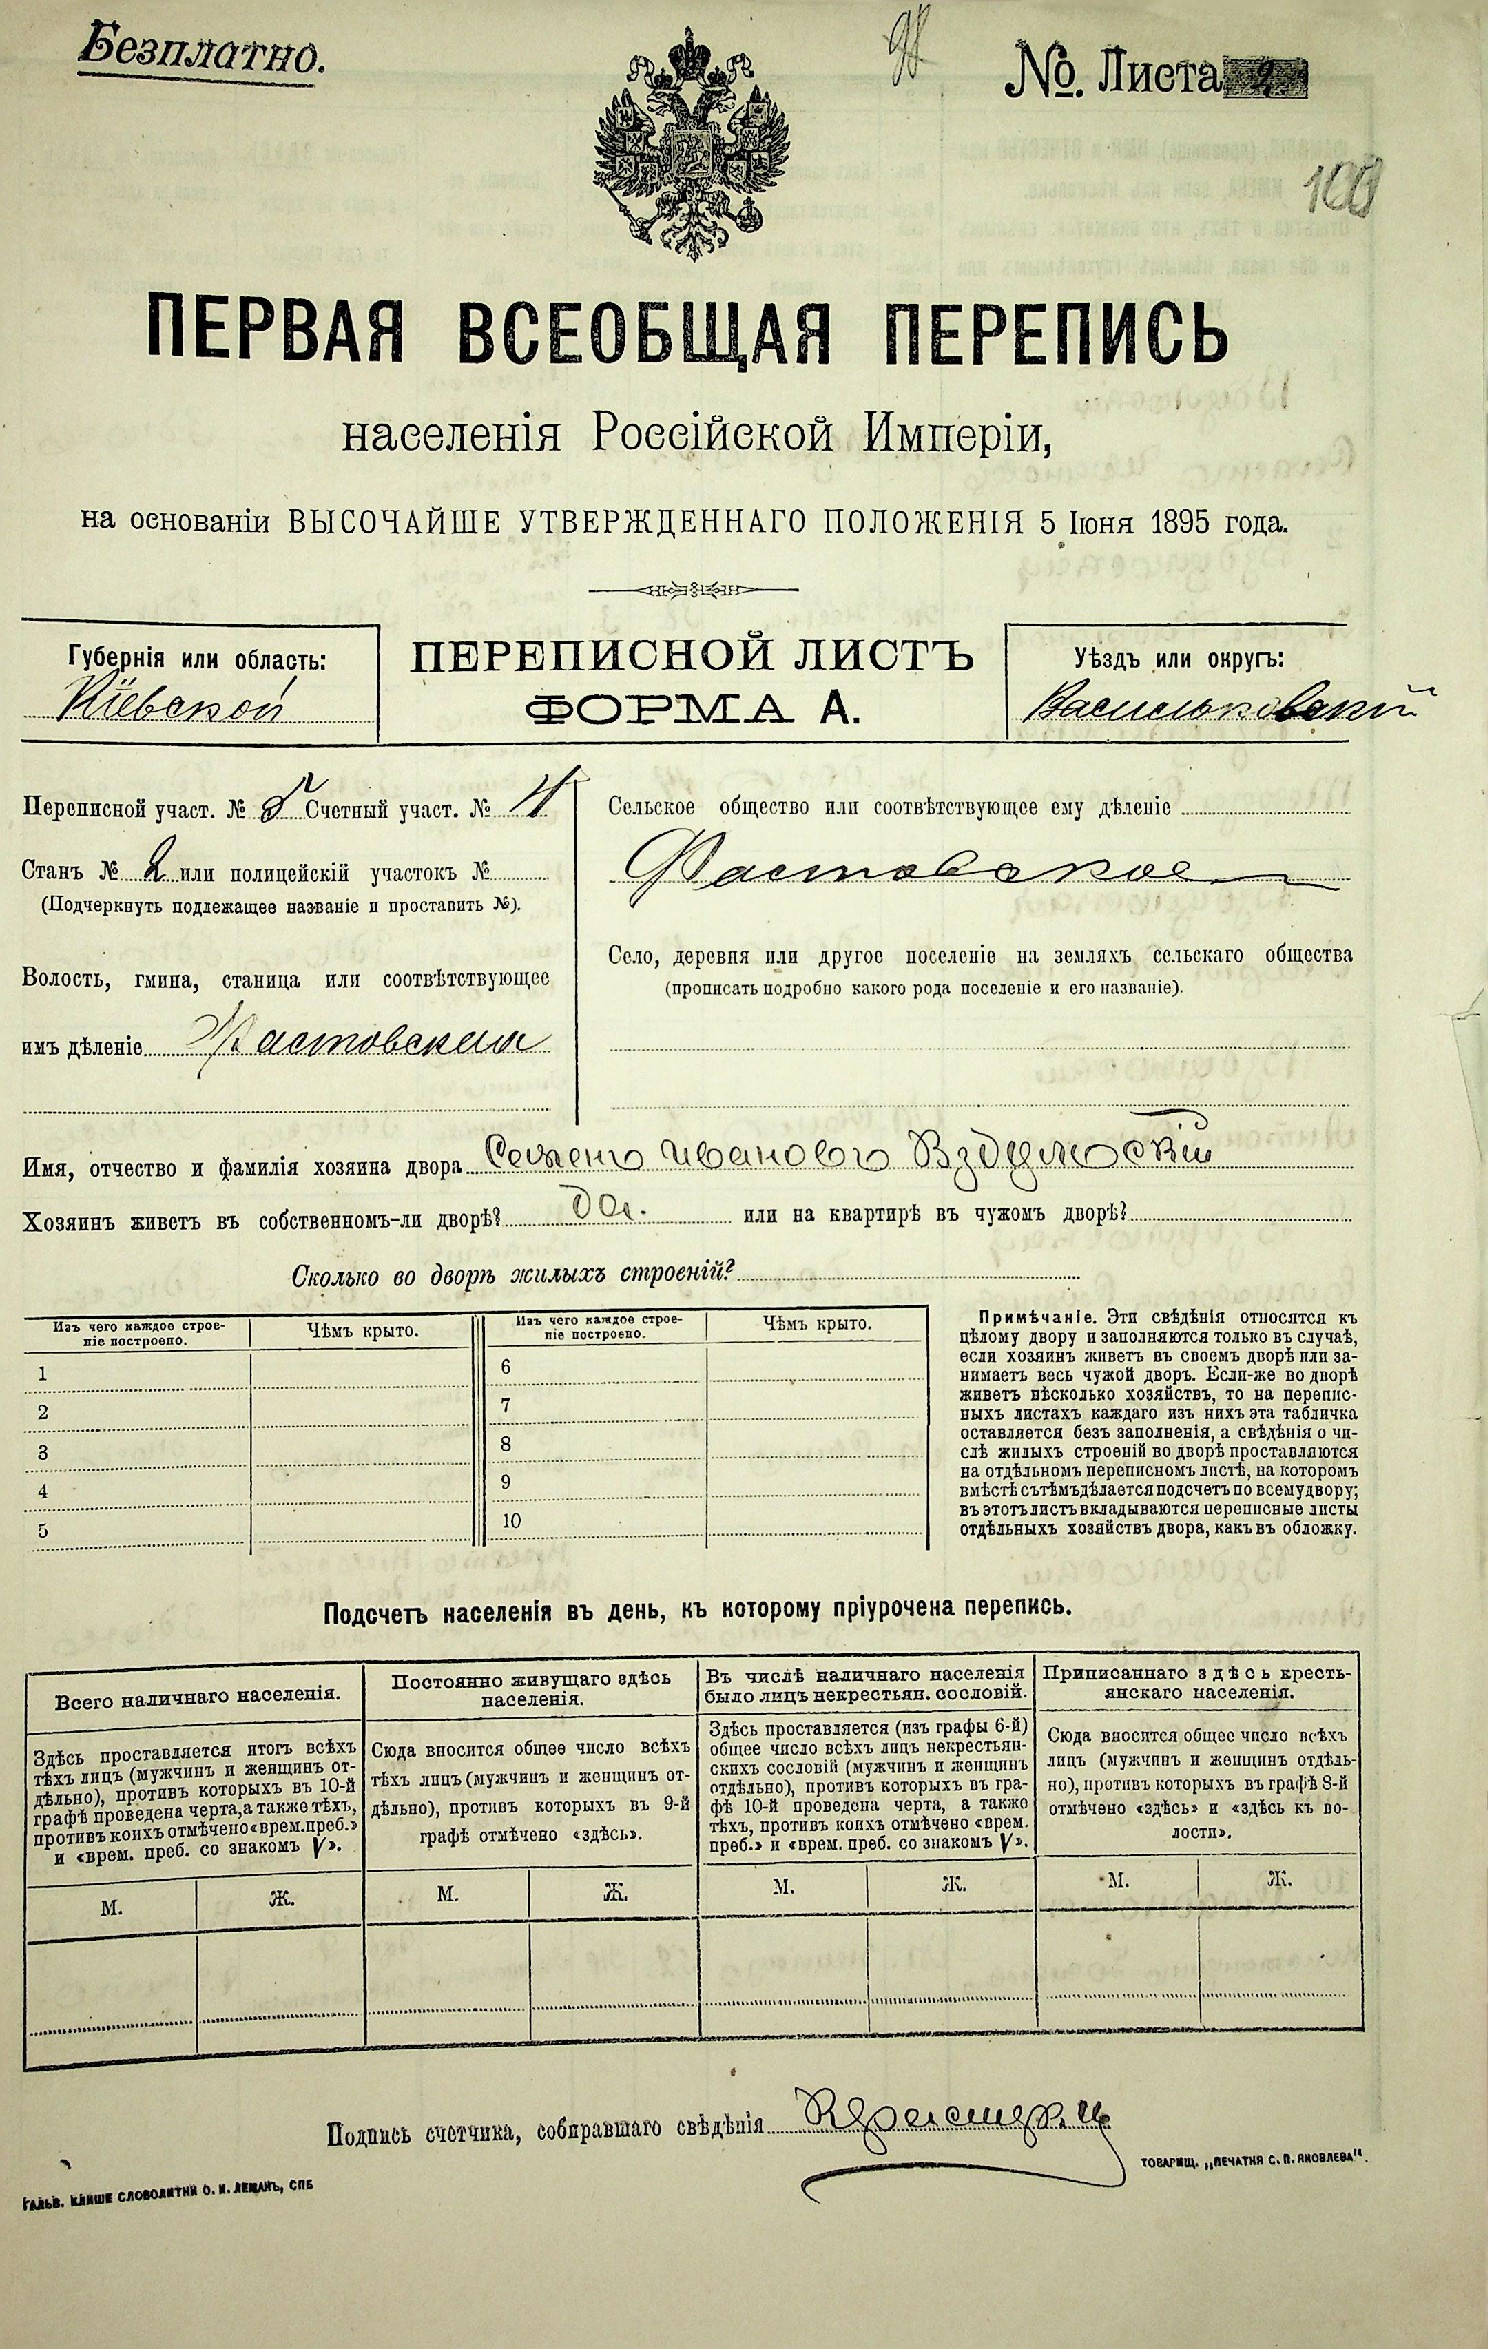 Безплатно.
98
№. Листа 2
100
ПЕРВАЯ ВСЕОБЩАЯ ПЕРЕПИСЬ
населенія Россійской Имперіи,
на основаніи ВЫСОЧАЙШЕ УТВЕРЖДЕННАГО ПОЛОЖЕНІЯ 5 Іюня 1895 года.
Губернія или область:
Кіевской
ПЕРЕПИСНОЙ ЛИСТЪ
ФОРМА А.
Уѣздъ или округъ:
Васильковскій
Переписной участ. № 5 Счетный участ. № 4
Станъ № 2 или полицейскій участокъ №
(Подчеркнуть подлежащее названіе и проставить №).
Волость, гмина, станица или соотвѣтствующее
имъ дѣленіе Фастовская
Сельское общество или соотвѣтствующее ему дѣленіе
Фастовское
Село, деревня или другое поселеніе на земляхъ сельскаго общества
(прописать подробно какого рода поселеніе и его названіе).
Имя, отчество и фамилія хозяина двора Семенъ Ивановъ Вздульскій
Хозяинъ живетъ въ собственномъ-ли дворѣ? да. или на квартирѣ въ чужомъ дворѣ?
Сколько во дворѣ жилыхъ строеній?
Изъ чего каждое строе-
ніе построено.
Чѣмъ крыто.
Изъ чего каждое строе-
ніе построено.
Чѣмъ крыто.
1
2
3
4
5
6
7
8
9
10
Примѣчаніе. Эти свѣдѣнія относятся къ
цѣлому двору и заполняются только въ случаѣ,
если хозяинъ живетъ въ своемъ дворѣ или за-
нимаетъ весь чужой дворъ. Если-же во дворѣ
живетъ нѣсколько хозяйствъ, то на перепис-
ныхъ листахъ каждаго изъ нихъ эта табличка
оставляется безъ заполненія, а свѣдѣнія о чи-
слѣ жилыхъ строеній во дворѣ проставляются
на отдѣльномъ переписномъ листѣ, на которомъ
вмѣстѣ съ тѣмъ дѣлается подсчетъ по всему двору;
въ этотъ листъ вкладываются переписные листы
отдѣльныхъ хозяйствъ двора, какъ въ обложку.
Подсчетъ населенія въ день, къ которому пріурочена перепись.
Всего наличнаго населенія.
Здѣсь проставляется итогъ всѣхъ
тѣхъ лицъ (мужчинъ и женщинъ от-
дѣльно), противъ которыхъ въ 10-й
графѣ проведена черта, а также тѣхъ,
противъ коихъ отмѣчено «врем. преб.»
и «врем. преб. со знакомъ V».
М. Ж.
Постоянно живущаго здѣсь
населенія.
Сюда вносится общее число всѣхъ
тѣхъ лицъ (мужчинъ и женщинъ от-
дѣльно), противъ которыхъ въ 9-й
графѣ отмѣчено «здѣсь».
М. Ж.
Въ числѣ наличнаго населенія
было лицъ некрестьян. сословій.
Здѣсь проставляется (изъ графы 6-й)
общее число всѣхъ лицъ некрестьян-
скихъ сословій (мужчинъ и женщинъ
отдѣльно), противъ которыхъ въ гра-
фѣ 10-й проведена черта, а также
тѣхъ, противъ коихъ отмѣчено «врем.
преб.» и «врем. преб. со знакомъ V».
М. Ж.
Приписаннаго здѣсь кресть-
янскаго населенія.
Сюда вносится общее число всѣхъ
лицъ (мужчинъ и женщинъ отдѣль-
но), противъ которыхъ въ графѣ 8-й
отмѣчено «здѣсь» и «здѣсь къ во-
лости».
М. Ж.
Подпись счетчика, собиравшаго свѣдѣнія
ГАЛЬВ. КЛИШЕ СЛОВОЛИТНИ О. И. ЛЕМАНЪ, СПБ
ТОВАРИЩ. „ПЕЧАТНЯ С. П. ЯКОВЛЕВА".